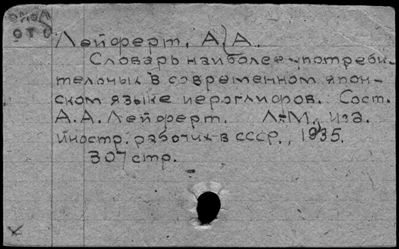 Лейферт, А. А.
Словарь наиболее употреби-
тельных в современном япон-
ском языке иероглифов. Сост.
А.А. Лейферт. Л.-М., Изд.
иностр. рабочих в СССР, 1935.
307 стр.